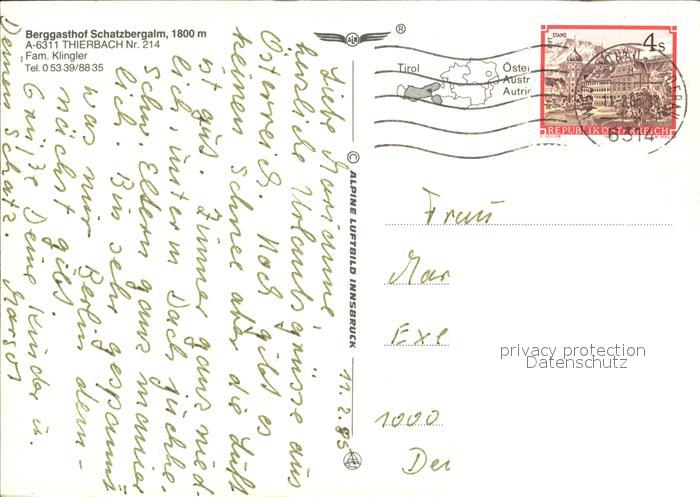 Berggasthof Schatzbergalm, 1800 m
A-6311 THIERBACH Nr. 214
Fam. Klingler
Tel. 0 53 39/88 35
ALM
®
Tirol
Öste
Austr
Autri
STAMS
4 S
REPUBLIK ÖSTERREICH
6314
© ALPINE LUFTBILD INNSBRUCK
Liebe Marianne,
herzliche Urlaubsgrüsse aus
Österreich. Noch gibt es
keinen Schnee aber die Luft
ist gut. Zimmer ganz nied-
lich, unterm Dach juchhe.
Schw. Eltern ganz manier
lich. Bin sehr gespannt
was mir Berlin dem-
nächst gibt.
Grüße Deine Kinder u.
Deinen Schatz. Margot
11.2.85
Frau
Mar
Exe
1000
Deu
privacy protection
Datenschutz